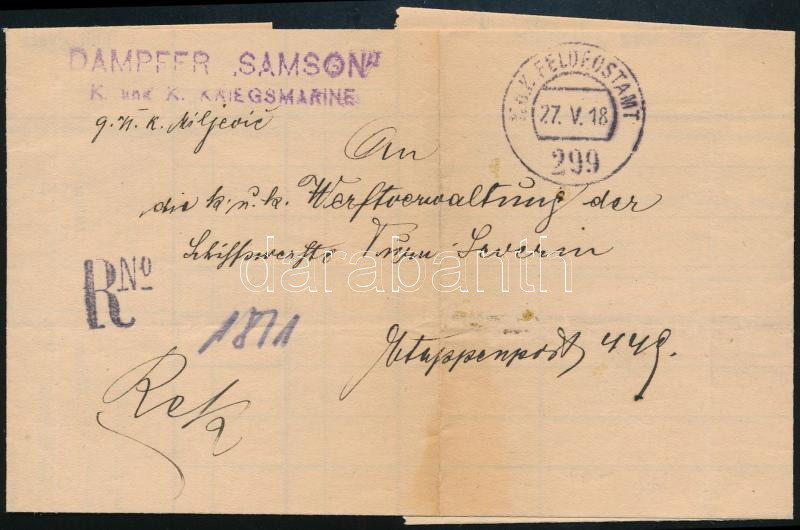 DAMPFER „SAMSON“
K. und K. KRIEGSMARINE
K.u.K. FELDPOSTAMT
27. V. 18
299
g. n. k. Miljević
An
die k. u. k. Werftverwaltung der
Schiffswerfte Turnu-Severin
darabanth
R No
1871
Etappenpost 449.
Rek